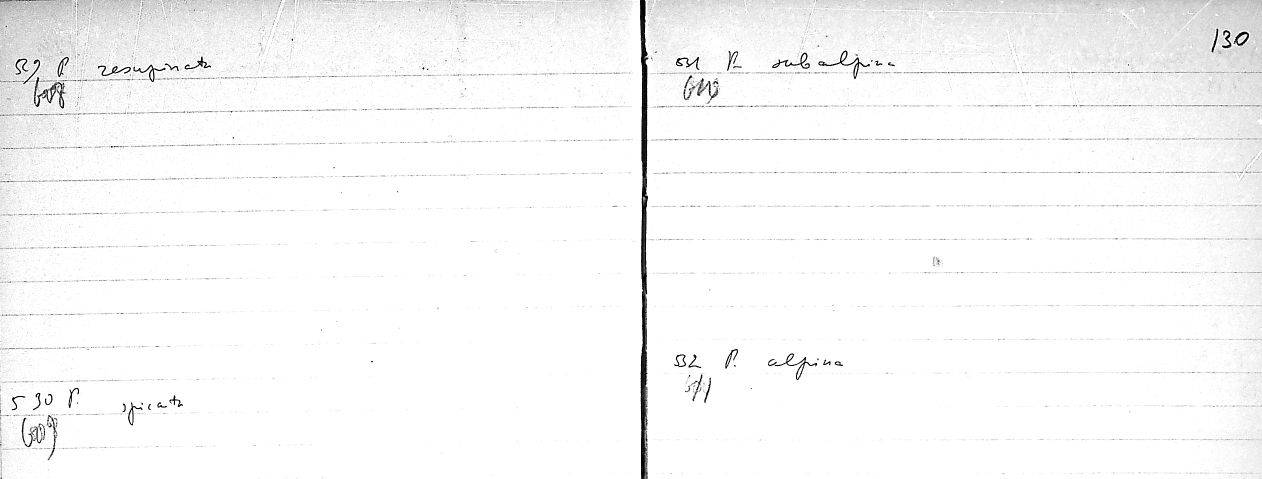 529 P. resupinata
608
530 P. spicata
609
130
531 P. subalpina
610
532 P. alpina
611